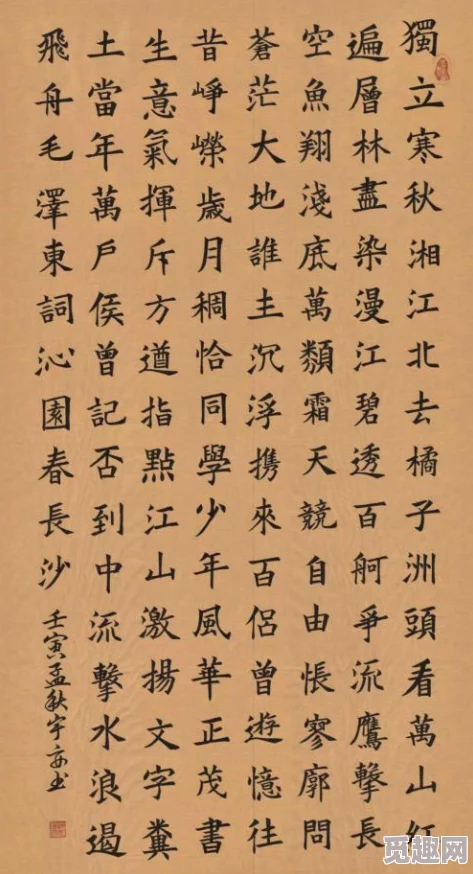 獨立寒秋湘江北去橘子洲頭看萬山紅
遍層林盡染漫江碧透百舸爭流鷹擊長
空魚翔淺底萬類霜天競自由悵寥廓問
蒼茫大地誰主沉浮携來百侶曾遊憶往
昔崢嶸歲月稠恰同學少年風華正茂書
生意氣揮斥方遒指點江山激揚文字糞
土當年萬戶侯曾記否到中流擊水浪遏
飛舟毛澤東詞沁園春長沙
壬寅孟秋宇书
觅趣网